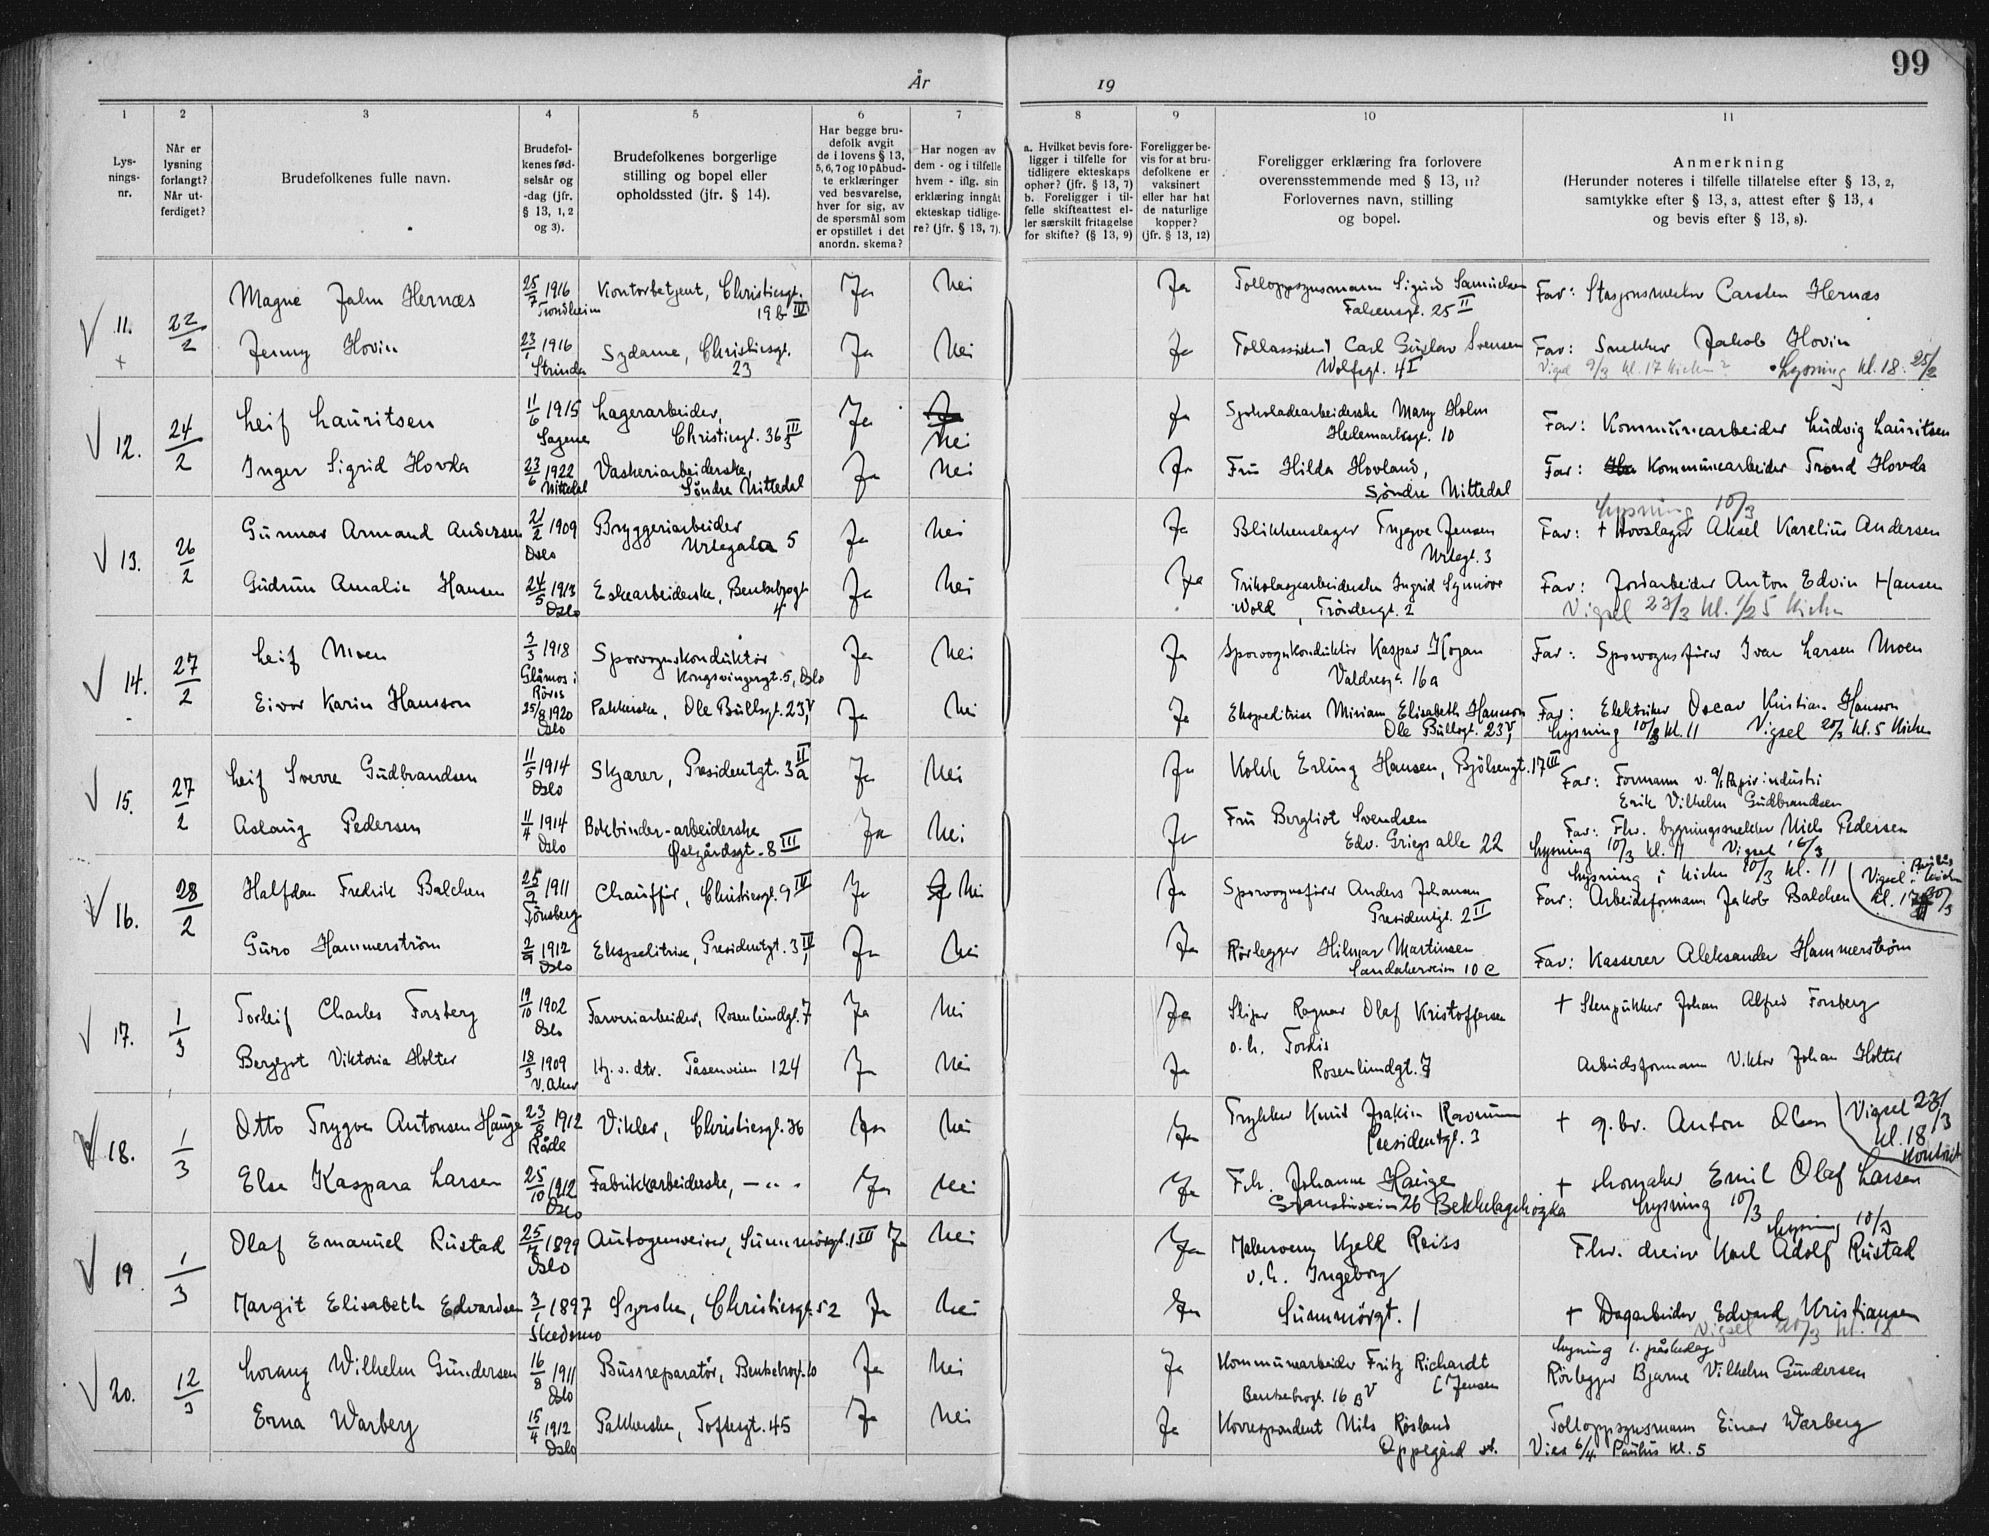 99
År 19
1 2 3 4 5 6 7 8 9 10 11
Lys-
nings-
nr.
Når er
lysning
forlangt?
Når ut-
ferdiget?
Brudefolkenes fulle navn.
Brudefol-
kenes fød-
selsår og
-dag (jfr.
§ 13, 1, 2
og 3).
Brudefolkenes borgerlige
stilling og bopel eller
opholdssted (jfr. § 14).
Har begge bru-
defolk avgit
de i lovens § 13,
5, 6, 7 og 10 påbud-
te erklæringer
ved besvarelse,
hver for sig, av
de spørsmål som
er opstillet i det
anordn. skema?
Har nogen av
dem - og i tilfelle
hvem - iflg. sin
erklæring inngåt
ekteskap tidlige-
re? (jfr. § 13, 7).
a. Hvilket bevis fore-
ligger i tilfelle for
tidligere ekteskaps
ophør? (jfr. § 13, 7)
b. Foreligger i til-
felle skifteattest el-
ler særskilt fritagelse
for skifte? (§ 13, 9)
Foreligger be-
vis for at bru-
defolkene er
vaksinert
eller har hat
de naturlige
kopper?
(jfr. § 13, 12)
Foreligger erklæring fra forlovere
overensstemmende med § 13, 11?
Forlovernes navn, stilling
og bopel.
Anmerkning
(Herunder noteres i tilfelle tillatelse efter § 13, 2,
samtykke efter § 13, 3, attest efter § 13, 4
og bevis efter § 13, 8).
11. 22/2 Magne Hernæs 25/7 1916 Trondheim Kontorbetjent, Christiesgt. 19b IV Ja Nei Ja Tolloppsynsmann Sigurd Samuelsen Falsensgt. 25 II Far: Stasjonsmester Carsten Hernæs
Jenny Hovin 23/1 1916 Strinda Sydame, Christiesgt. 23 Ja Nei Ja Tollassistent Carl Gustav Svensen Wolfsgt. 4 I Far: Snekker Jakob Hovin
Vigsel 9/3 kl. 17 Kirken? Lysning kl. 18. 25/2
12. 24/2 Leif Lauritsen 11/6 1915 Sagene Lagerarbeider, Christiesgt. 36 III Ja Nei Ja Sjokoladearbeiderske Mary Holm Hedemarksgt. 10 Far: Kommunearbeider Ludvig Lauritsen
Inger Sigrid Hovda 23/6 1922 Nittedal Vaskeriarbeiderske, Søndre Nittedal Ja Nei Ja Fru Hilda Hovland, Søndre Nittedal Far: Kommunearbeider Trond Hovda
Lysning 10/3
13. 26/2 Gunnar Armand Andersen 21/2 1909 Oslo Bryggeriarbeider Urtegata 5 Ja Nei Ja Blikkenslager Trygve Jensen Urtegt. 3 Far: + Hovslager Aksel Karelius Andersen
Gudrun Amalie Hansen 24/5 1913 Oslo Eskearbeiderske, Bentsebrogt. 4 Ja Nei Ja Trikotasjearbeiderske Ingrid Synnøve Wold, Trondergt. 2 Far: Jordarbeider Anton Edvin Hansen
Vigsel 23/3 kl. 1/2 5 Kirken
14. 27/2 Leif Moen 3/3 1918 Glåmos i Röros Sporvognskonduktör Kongsvingergt. 5, Oslo Ja Nei Ja Sporvognkonduktör Kaspar Kojan Valdresgt. 16a Far: Sporvognsfører Ivar Larsen Moen
Eivor Karin Hansson 25/8 1920 Oslo Pakkerske, Ole Bullsgt. 23, V Ja Nei Ja Ekspeditrise Miriam Elisabeth Hansson Ole Bullsgt. 23, V Far: Elektriker Oscar Kristian Hansson
Lysning 10/3 kl. 11 Vigsel 20/3 kl. 5 Kirken
15. 27/2 Leif Sverre Gudbrandsen 11/5 1914 Oslo Skjærer, Presidentgt. 3a II Ja Nei Ja Kokk Erling Hansen, Bjölsengt. 17 III Far: Formann v. A/S Papirindustri Erik Vilhelm Gudbrandsen
Aslaug Pedersen 11/4 1914 Oslo Bokbinder-arbeiderske Østgårdsgt. 8 III Ja Nei Ja Fru Bergliot Svendsen Edv. Griegs alle 22 Far: Fhv. bygningssnekker Niels Pedersen
Lysning 10/3 kl. 11 Vigsel 16/3
16. 28/2 Halfdan Fredrik Balchen 25/9 1911 Tönsberg Chauffør, Christiesgt. 9 IV Ja Nei Ja Sporvognsfører Anders Johansen Presidentgt. 2 II Far: Arbeidsformann Jakob Balchen
Lysning i Kirken 10/3 kl. 11 Vigsel i Kirken kl. 17 20/3
Guro Hammerström 2/9 1912 Oslo Ekspeditrise, Presidentgt. 3 IV Ja Nei Ja Rørlegger Hilmar Martinsen Sandakerveien 10 c Far: Kasserer Aleksander Hammerström
17. 1/3 Torleif Charles Forsberg 19/10 1902 Oslo Farveriarbeider, Rosenlundgt. 7 Ja Nei Ja Sliper Ragnar Olaf Kristoffersen o.h. Tordis Rosenlundgt. 7 + Stenpukker Johan Alfred Forsberg
Bergljot Viktoria Holter 18/3 1909 V. Aker Hj. v. dtr. Tåsenveien 124 Ja Nei Ja Arbeidsformann Viktor Johan Holter
18. 1/3 Otto Trygve Antonsen Hauge 23/9 1912 Råde Vikler, Christiesgt. 36 Ja Nei Ja Trykker Knud Joakim Ravnum Presidentgt. 3 + g.br. Anton Olsen
Vigsel 23/3 kl. 18 Kontoret
Else Kaspara Larsen 25/10 1912 Oslo Fabrikkarbeiderske, -"- Ja Nei Ja Frk. Johanne Hauge 26 Bekkelagshøgda + skomaker Emil Olaf Larsen
Lysning 10/3
19. 1/3 Olaf Emanuel Rustad 25/7 1899 Oslo Autogensveiser, Sunnmörsgt. 1 III Ja Nei Ja Malersvenn Kjell Reiss o.h. Ingeborg Sunnmörgt. 1 Fhv. dreier Karl Adolf Rustad
Lysning 10/3
Margit Elisabeth Edvardsen 3/1 1897 Skedsmo Syerske, Christiesgt. 52 Ja Nei Ja + Dagarbeider Edvard Kristiansen
Vigsel 20/3 kl. 18
20. 12/3 Wilhelm Gundersen 16/8 1911 Oslo Bussreparatør, Bentsebrogt. 10 Ja Nei Ja Kommunearbeider Fritz Richardt Jensen Bentsebrogt. 16 B V Rørlegger Bjarne Vilhelm Gundersen
Lysning 1. påskedag
Erna Warberg 15/4 1912 Oslo Pakkerske, Toftesgt. 45 Ja Nei Ja Korrespondent Nils Røsland Oppegård st. Tolloppsynsmann Einar Warberg
Vies 6/4 Paulus kl. 5